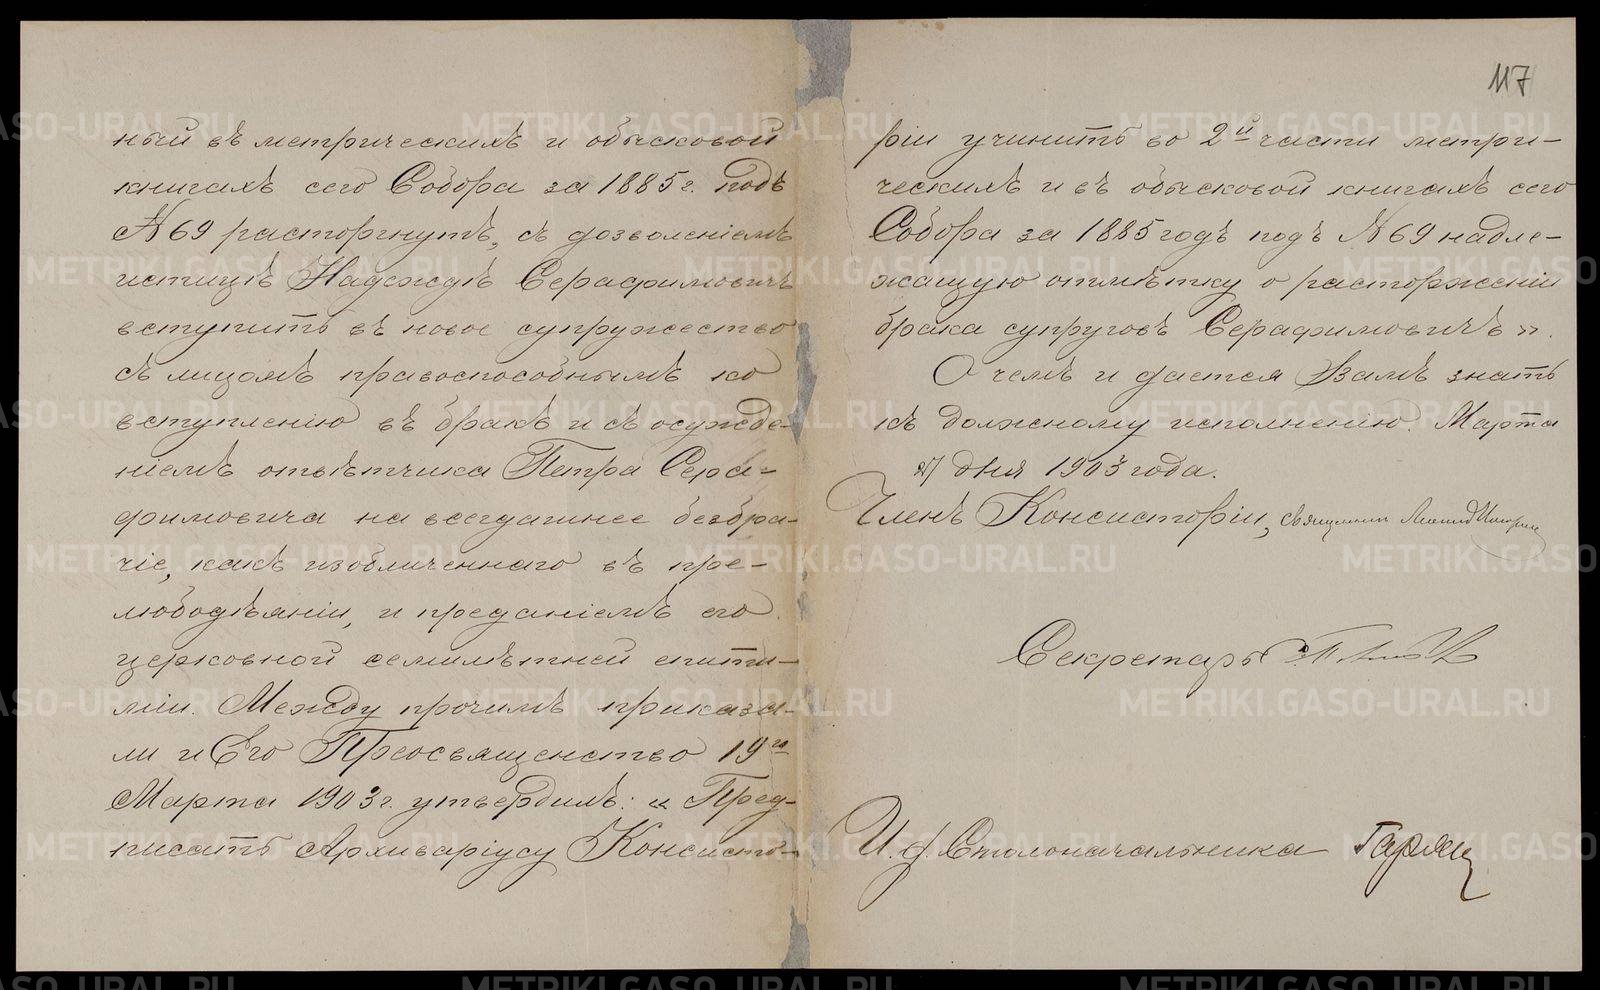 117
ный въ метрическихъ и обысковой
книгахъ сего Собора за 1885 г. подъ
№ 69 расторгнутъ, съ дозволеніемъ
истицѣ Надеждѣ Серафимовичъ
вступить въ новое супружество
съ лицомъ правоспособнымъ ко
вступленію въ бракъ и съ осужде-
ніемъ отвѣтчика Петра Сера-
фимовича на всегдашнее безбра-
чіе, какъ изобличеннаго въ пре-
любодѣяніи, и преданіемъ его
церковной семилѣтней епити-
міи. Между прочимъ приказа-
ли и Его Преосвященство 19го
Марта 1903 г. утвердилъ: „Пред-
писать Архиваріусу Консисто-
ріи учинить во 2й части метри-
ческихъ и въ обысковой книгахъ сего
Собора за 1885 годъ подъ № 69 надле-
жащую отмѣтку о расторженіи
брака супруговъ Серафимовичъ».
О чемъ и дается Вамъ знать
къ должному исполненію. Марта
27 дня 1903 года.
Членъ Консисторіи, священникъ
Секретарь
И. д. Столоначальника
METRIKI.GASO-URAL.RU